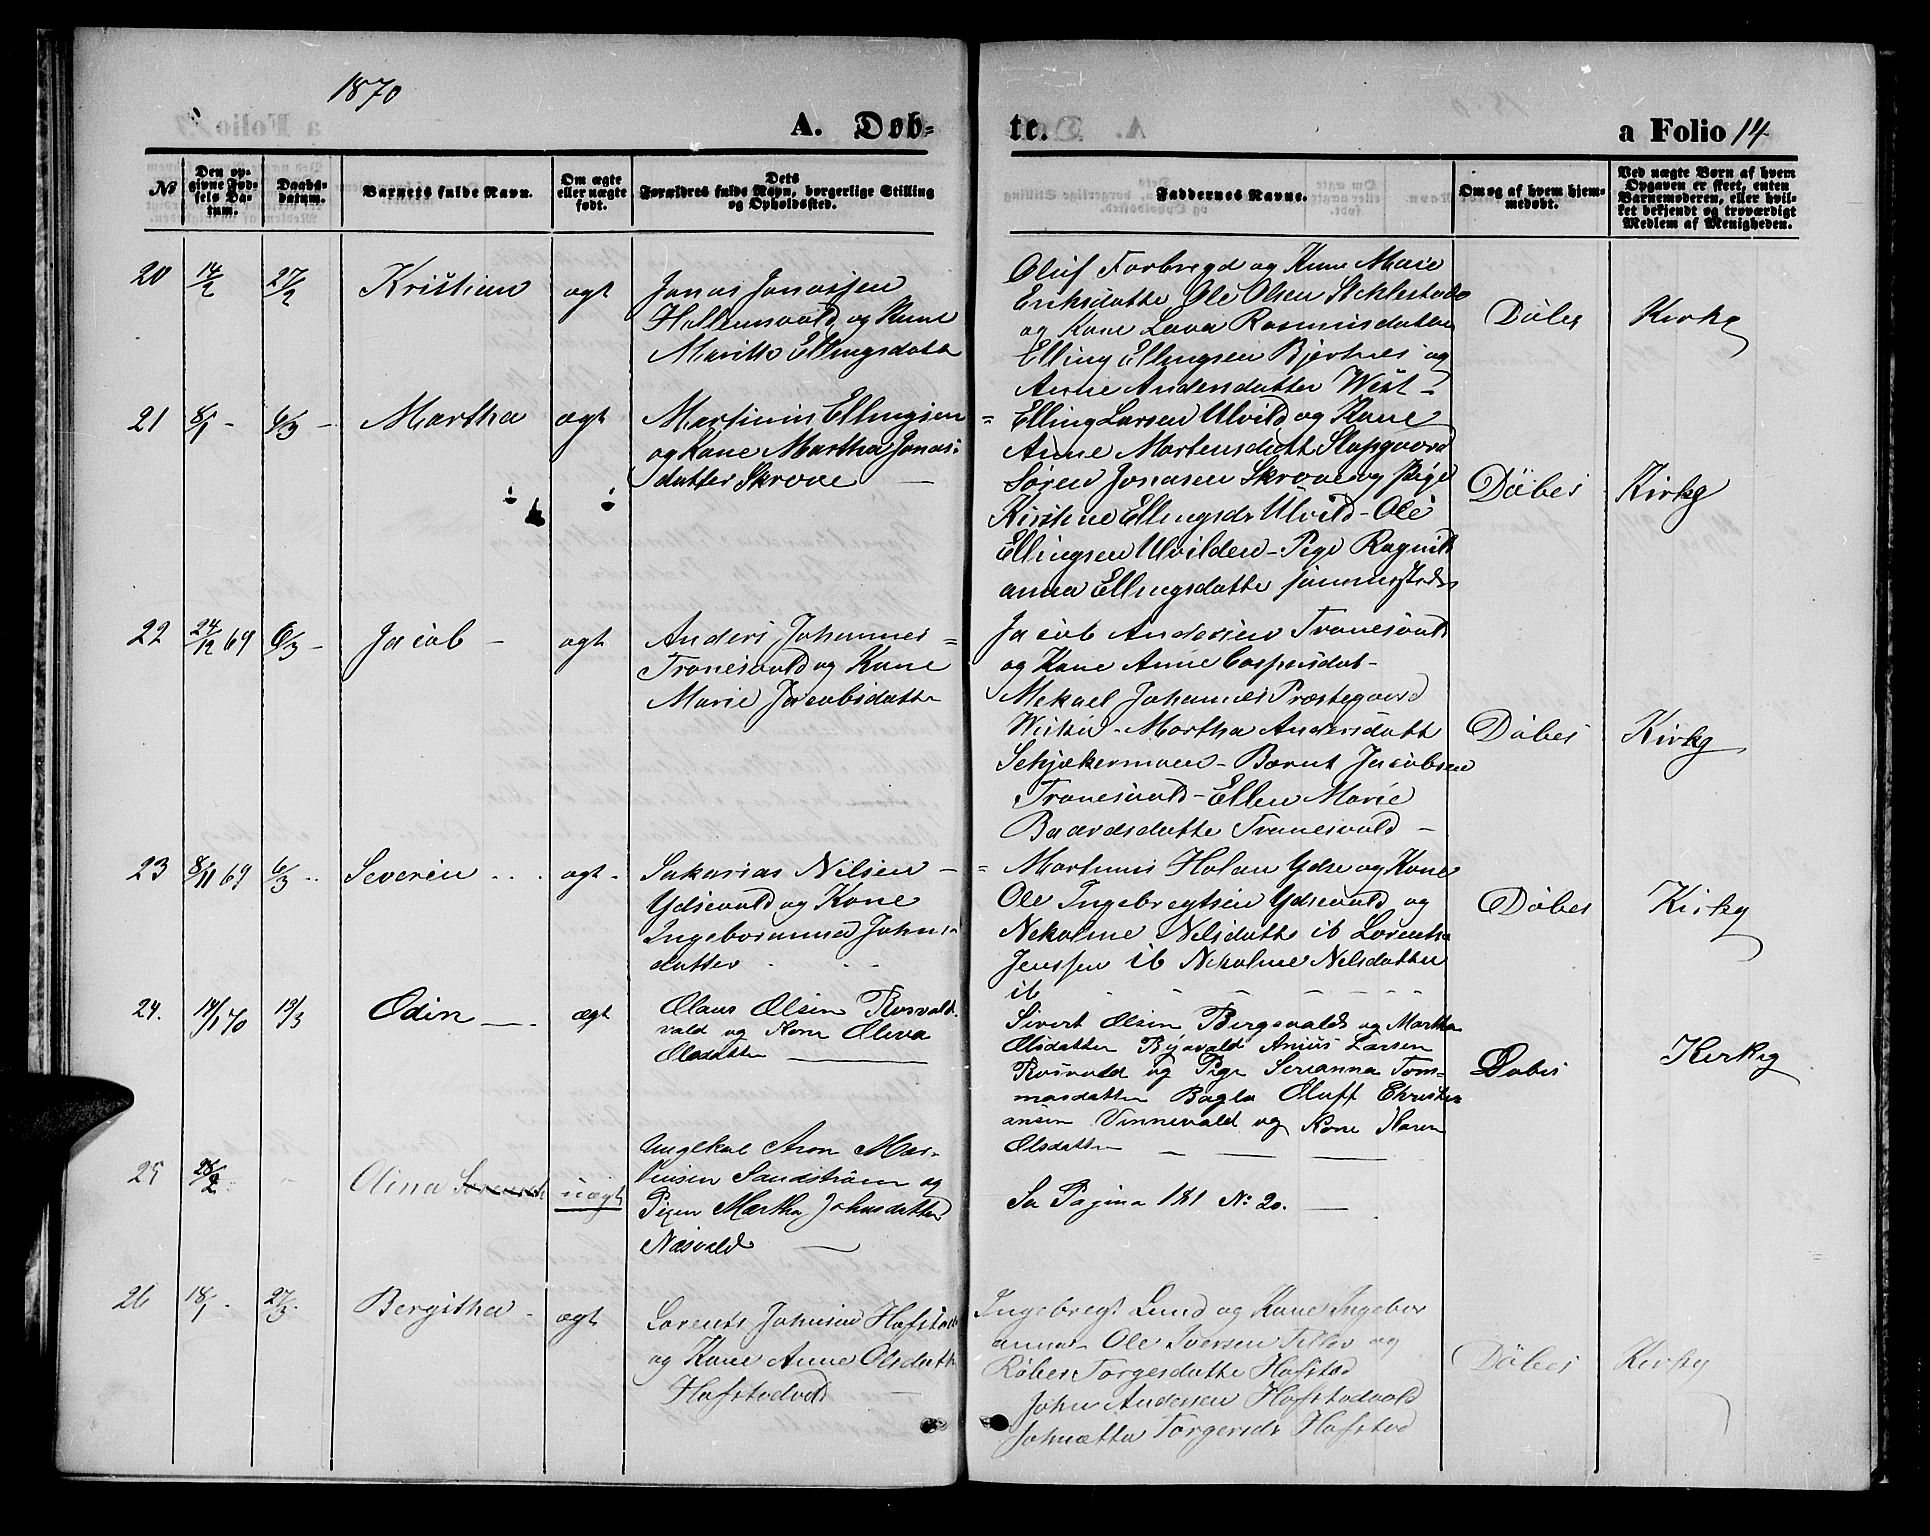 1870
A. Døb-
te.
a Folio 14
No
Den op-
givne Fød-
sels Da-
tum.
Daabs-
datum.
Barnets fulde Navn.
Om ægte
eller uægte
født.
Dets
Forældres fulde Navn, borgerlige Stilling
og Opholdssted.
Faddernes Navne.
Om og af hvem hjem-
medøbt.
Ved uægte Børn af hvem
Opgaven er skeet, enten
Barnemoderen, eller hvil-
ket bekjendt og troværdigt
Medlem af Menigheden.
20 14/2 27/2 Kristian ægt
Jonas Jonassen
og Kone
Marith Ellingsdatt
Oluf Forbregd og Kone Marie
Eriksdatte Ole Olsen Stiklestad
og Kone Lava Rasmusdatter
Elling Ellingsen Bjertnes og
Anne Andersdatter West-
Døbes Kirke
21 8/1 - 6/3 - Martha ægt
Martinus Ellingsen =
og Kone Martha Jonas-
datter Skrove -
Elling Larsen Ulvild og Kone
Anne Mortensdatt Slapgaard
Søren Jonasen Skrove og Pige
Kirstine Ellingsdr Ulvild - Ole
Ellingsen Ulvilden - Pige Ragnil
anna Ellingsdatte
Døbes Kirke
22 24/12 69 6/3 - Jacob - ægt
Anders Johannes =
Tronesvald og Kone
Marie Jacobsdatte
Jacob Andersen Tronesvald
og Kone Anne Caspersdat-
Mekael Johannes Præstegaard
- Martha Andersdatt
Schjækermoen - Bernt Jacobsen
Tronesvald - Ellen Marie
Baardsdatte Tronesvald -
Døbes Kirke
23 8/11 69 6/3 Severin ægt -
Sakarias Nilsen -
Ydsevald og Kone
Ingeboranna Johns-
datter
= Martinus Holan Ydse og Kone
Ole Ingebregtsen Ydsevald og
Nekoline Nelsdatte ib Lorents
Jenssen ib Nekoline Nelsdatter
ib
Døbes Kirke
24. 14/1 70 13/3 Odin - ægt
Olaus Olsen Rosvald-
vald og Kone Oleva
Olsdatter
Sivert Olsen Bergsvald og Martha
Olsdatter Larsen
Rosvald og Pige Serianna Tom-
masdatter Bagla Oluff Christi-
ansen Vinnevald og Kone Karen
Olsdatter
Døbes Kirke
25 28/2 Olina uægt
Ungkal Aron Mar-
tinsen Sandstrøm og
Pigen Martha Johnsdatter
Næsvald -
Se Pagina 181 No: 20. -
26 18/1 - 27/3 - Bergitha - ægt
Lorents Johnsen Hofstad
og Kone Anne Olsdatte
Hofstadvald
Ingebregt Lund og Kone Ingebor
anna - Ole Iversen Tiller og
Torgesdatte Hofstad
John Andersen Hofstadvald
Johnetta Torgersdr Hofstad
Døbes Kirke